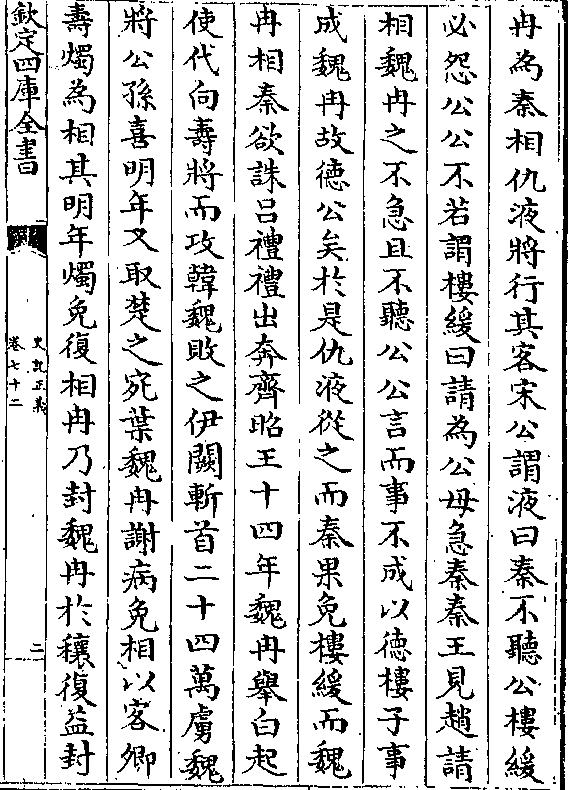 冉為秦相仇液將行其客宋公謂液曰秦不聽公樓緩
必怨公公不若謂樓緩曰請為公毋急秦秦王見趙請
相魏冉之不急且不聽公公言而事不成以徳樓子事
成魏冉故徳公矣於是仇液從之而秦果免樓緩而魏
冉相秦欲誅吕禮禮出奔齊昭王十四年魏冉舉白起
使代向壽將而攻韓魏敗之伊闕斬首二十四萬虜魏
將公孫喜明年又取楚之宛葉魏冉謝病免相以客卿
壽燭為相其明年燭免復相冉乃封魏冉於穰復益封
欽定四庫全書
史記正義
卷七十二
二